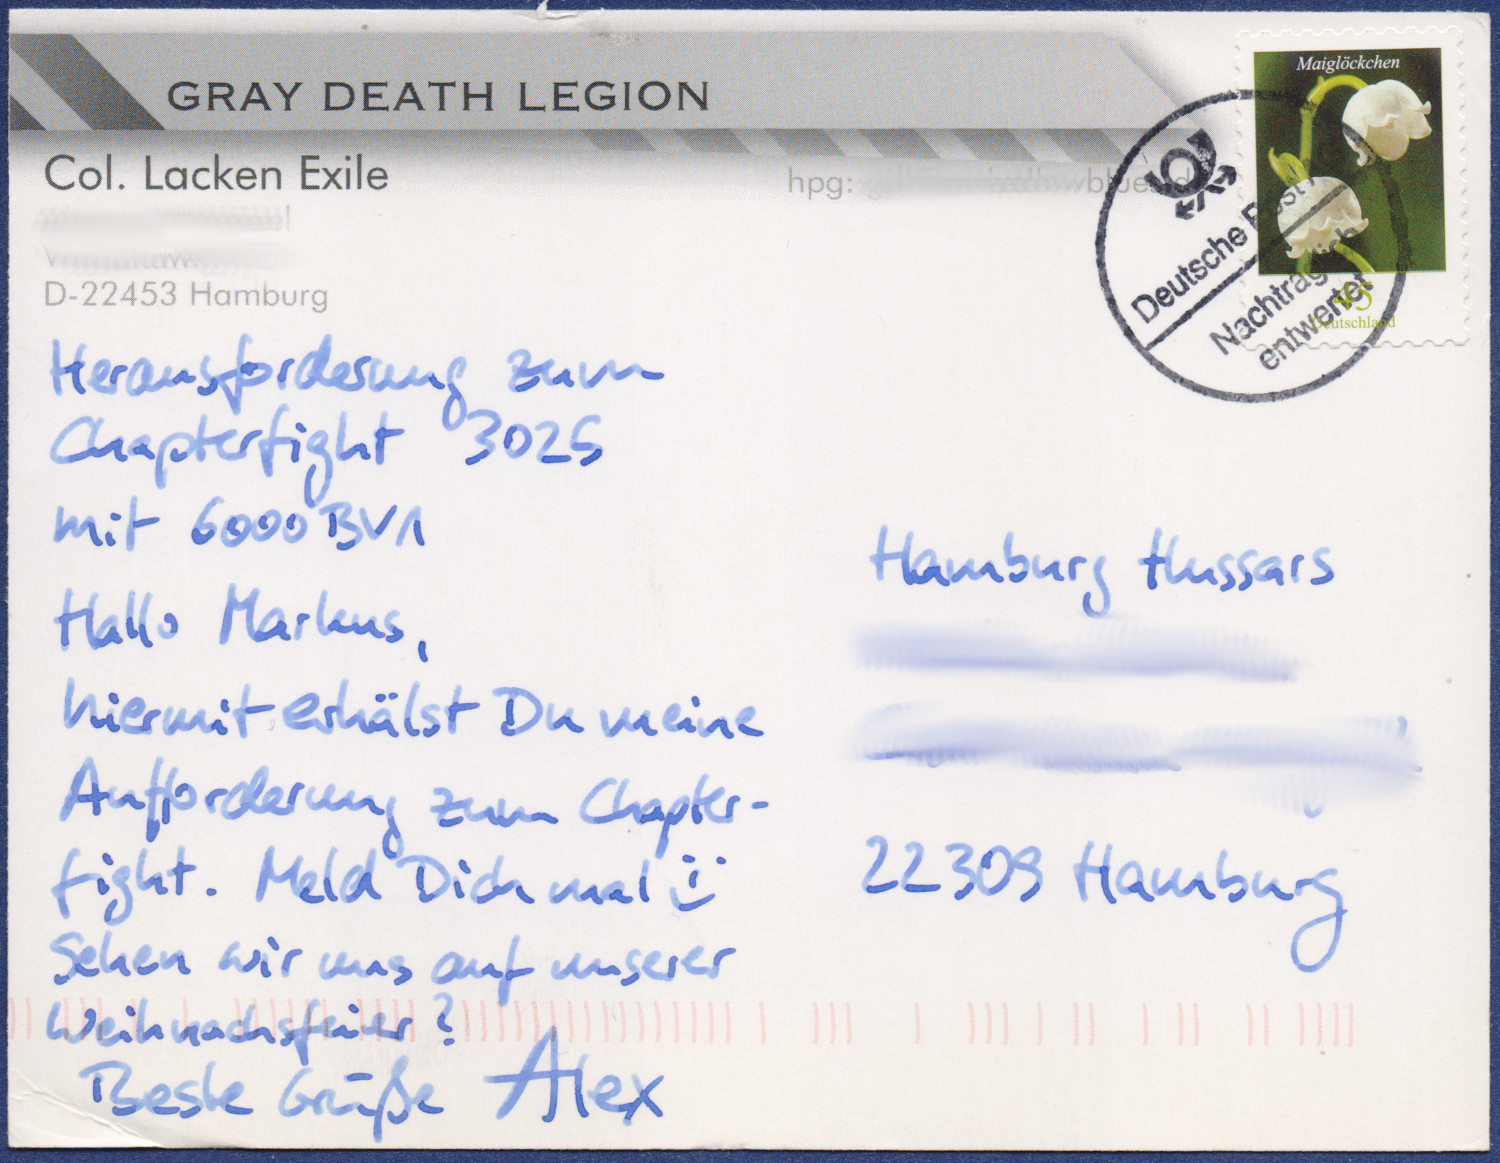 GRAY DEATH LEGION
Col. Lacken Exile
hpg:
D-22453 Hamburg
Maiglöckchen
45
Deutschland
Deutsche Post
Nachträglich
entwertet
Herausforderung zum
Chapterfight 3025
mit 6000 BV1
Hallo Markus,
hiermit erhälst Du meine
Aufforderung zum Chapter-
fight. Meld Dich mal
Sehen wir uns auf unserer
Weihnachsfeier?
Beste Grüße Alex
Hamburg Hussars
22309 Hamburg